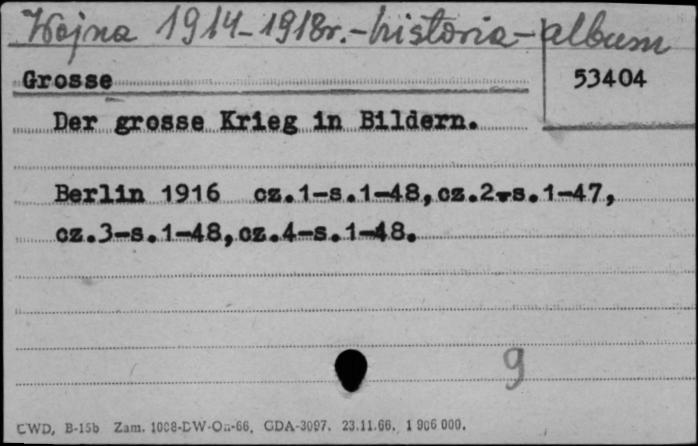 Wojna 1914-1918r.-historia-album
Grosse
53404
Der grosse Krieg in Bildern.
Berlin 1916 cz.1-s.1-48,cz.2-s.1-47,
cz.3-s.1-48,cz.4-s.1-48.
9
CWD, B-15b Zam. 1008-DW-Oa-66, GDA-3097. 23.11.66. 1 906 000.